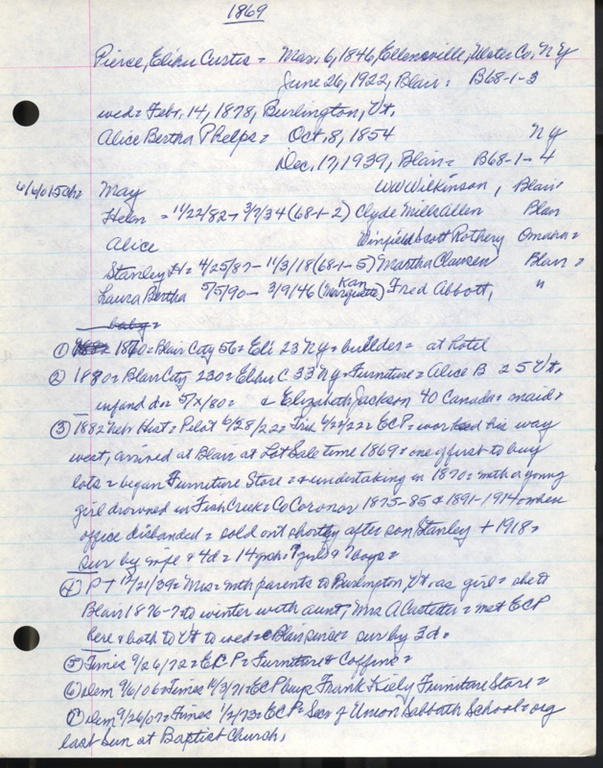 1869
Pierce, Elihu Curtis = Mar. 6, 1846, Ellenville, Ulster Co, NY
June 26, 1922, Blair = B68-1-3
wed = Febr. 14, 1878, Burlington, Vt.
Alice Bertha Phelps = Oct. 8, 1854 NY
Dec. 17, 1939, Blair = B68-1-4
May WW Wilkinson, Blair
Helen = 11/22/82 - 3/7/34 (68-1-2) Clyde Mills Allen Blair
Alice Winfield Scott Rothery Omaha =
Stanley H = 4/25/87 - 11/3/18 (68-1-5) Martha Clausen Blair =
Laura Bertha 5/5/90 - 3/9/46 Fred Abbott, "
baby =
① 1870 = Blair City 56 = Eli 23 NY = builder = at Hotel
② 1880 = Blair City 230 = Elihu C 33 NY = Furniture = Alice B 25 Vt.
infand da 5/x/80 = & Elizabeth Jackson 40 Canada = maid =
③ 1882 Nebr Hist = Pilot 6/28/22 = ECP = worked his way
west, arrived at Blair at Lot Sale time 1869 = one of first to buy
lots = began Furniture Store = & undertaking in 1870 = young
girl drowned in Fish Creek = Co Coronor 1875-85 & 1891-1914 = when
office disbanded = sold out shortly after son Stanley + 1918 =
sur by wife & 4d = 14 gch = 7 girls & 7 boys =
④ P + 12/21/39 = Mrs = with parents to Burlington Vt. as girl =
Blair 1876-7 to winter with aunt, Mrs A Castetter = met ECP
here & both to Vt to wed = Blair since = sur by 3d =
⑤ Times 9/26/72 = ECP = Furniture & Coffins =
⑥ Dem 9/6/06 = Times ECP buys Frank Kiely Furniture Store =
⑦ Dem 9/26/07 = Times 1/2/73 = ECP = Sec of Union Sabbath School = org
last Sun at Baptist Church,